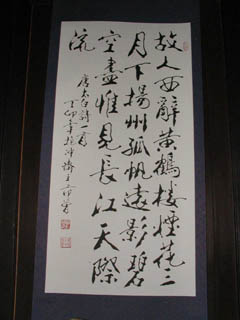 故人西辭黃鶴樓煙花三
月下揚州孤帆遠影碧
空盡惟見長江天際
流
唐太白詩一首
丁卯年